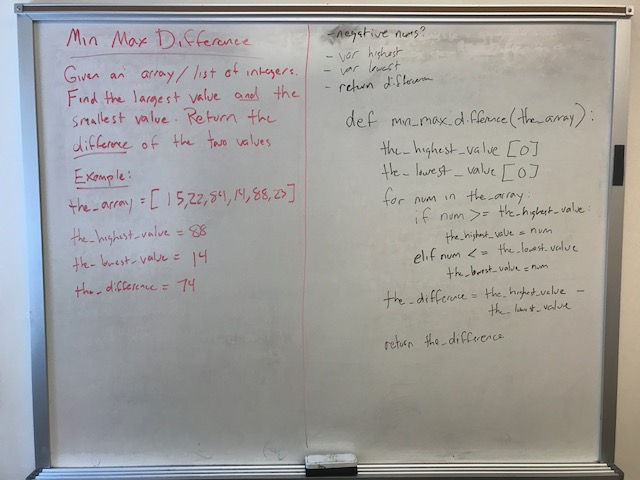 Min Max Difference
Given an array/list of integers.
Find the largest value and the
smallest value. Return the
difference of the two values
Example:
the_array = [15,22,84,14,88,23]
the_highest_value = 88
the_lowest_value = 14
the_difference = 74
- negative nums?
- var highest
- var lowest
- return difference
def min_max_difference(the_array):
the_highest_value [0]
the_lowest_value [0]
for num in the_array:
if num >= the_highest_value:
the_highest_value = num
elif num <= the_lowest_value
the_lowest_value = num
the_difference = the_highest_value -
the_lowest_value
return the_difference